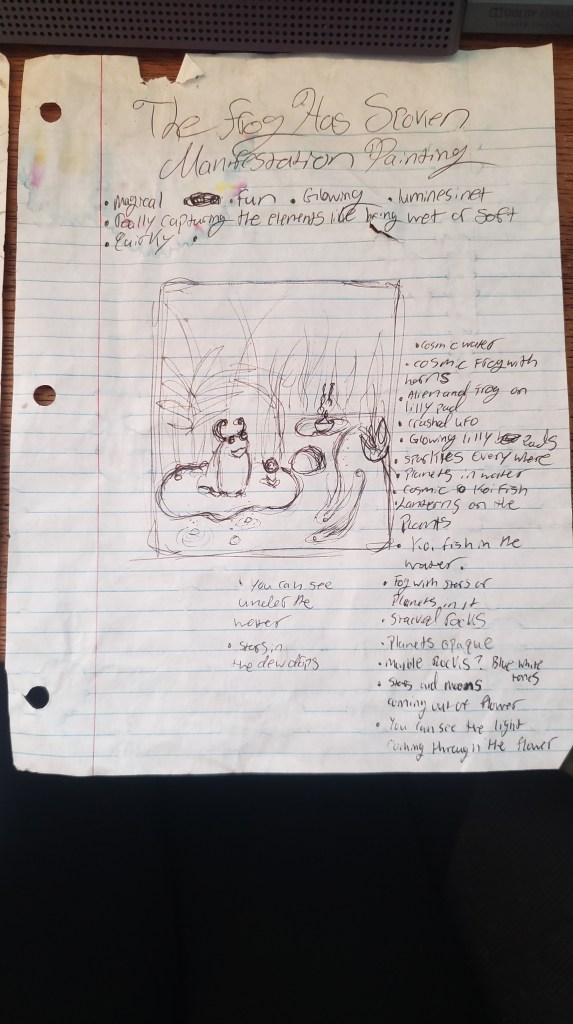 The Frog Has Spoken
Manifestation Painting
• Magical • fun • Glowing • luminesinet
• Really capturing the elements like being wet or soft
• Quirky •
• cosmic water
• cosmic Frog with
horns
• Alien and frog on
lilly pad
• crashed UFO
• Glowing lilly Pads
• sparkles Every where
• Planets in water
• cosmic Koi Fish
• Lanterns on the
Plants
• Koi fish in the
water.
• Fog with stars or
Planets in it
• Stacked rocks
• Planets opaque
• Marble Rocks? Blue white
tones
• Stars and moons
coming out of flower
• You can see the light
coming through the flower
• You can see
under the
water
• stars in
the dew drops